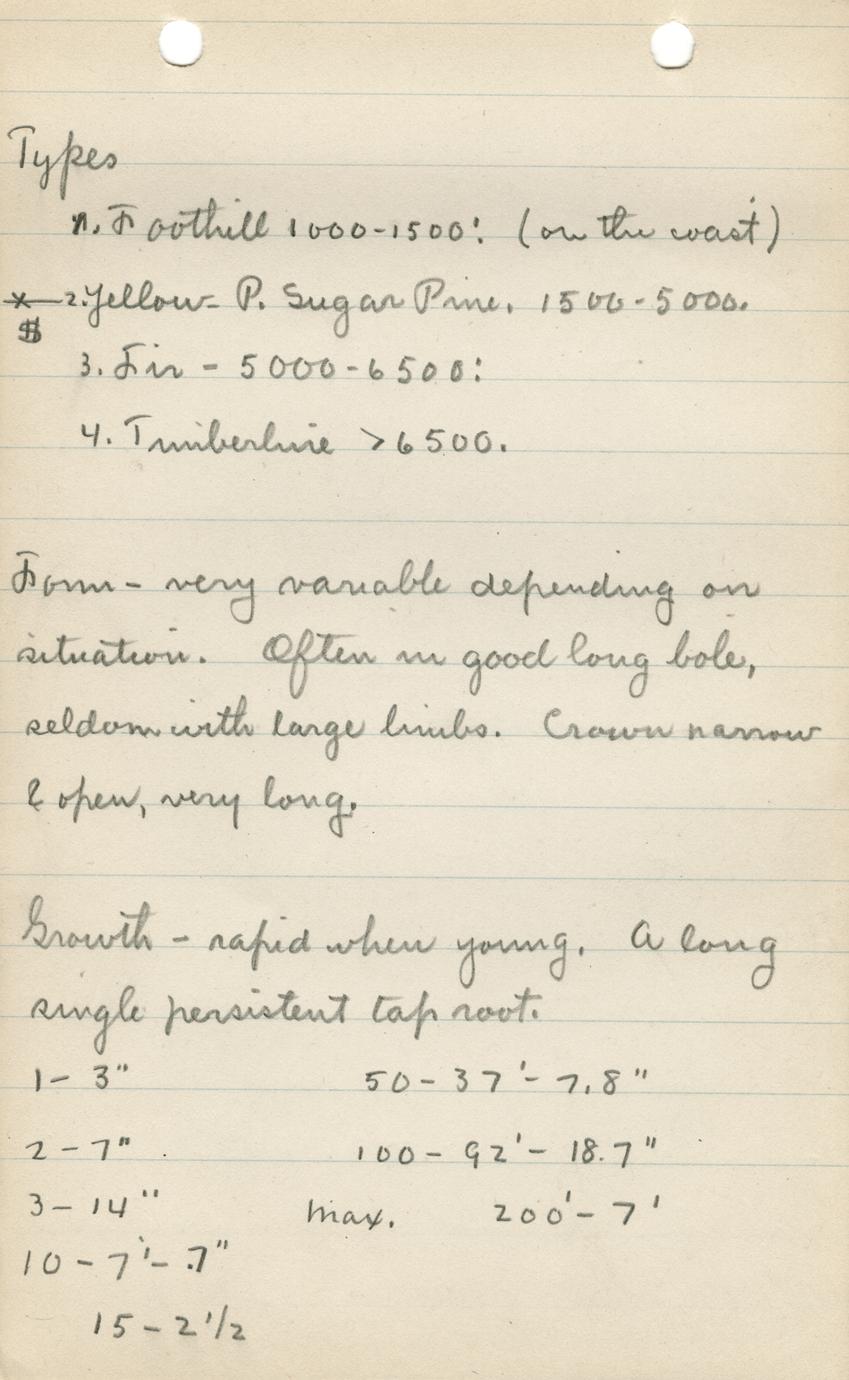 Types
1. Foothill 1000-1500'. (on the coast)
x 2. Yellow- P. Sugar Pine. 1500-5000.
$
3. Fir - 5000-6500'.
4. Timberline >6500.
Form - very variable depending on
situation. Often in good long bole,
seldom with large limbs. Crown narrow
& open, very long.
Growth - rapid when young. A long
single persistent tap root.
1- 3" 50- 37'- 7.8"
2 - 7" 100- 92'- 18.7"
3- 14" Max. 200'- 7'
10 - 7'- .7"
15 - 2 1/2